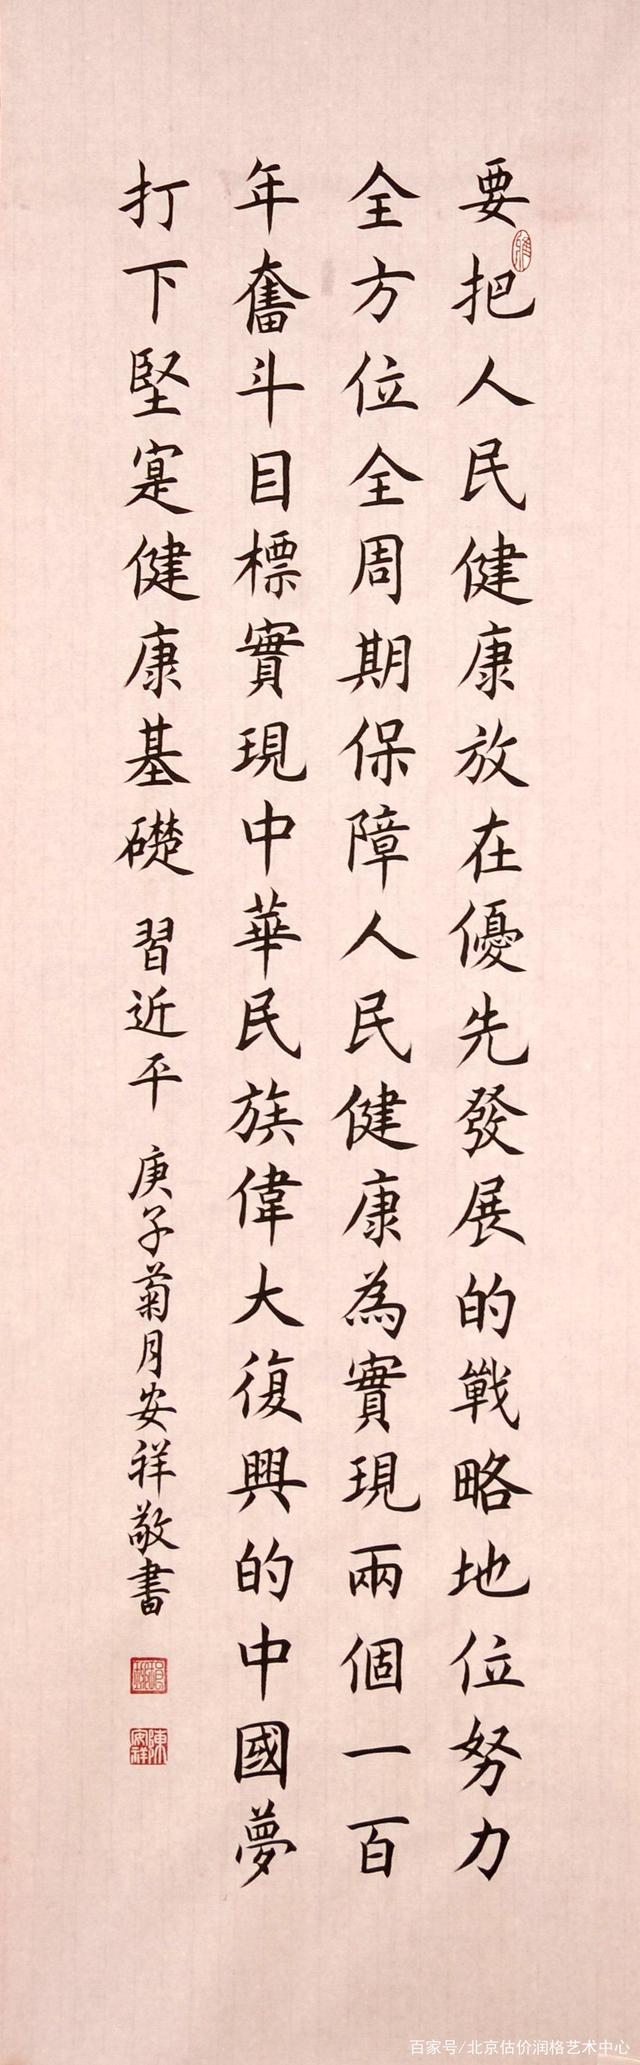 要把人民健康放在優先發展的戰略地位努力
全方位全周期保障人民健康為實現兩個一百
年奮斗目標實現中華民族偉大復興的中國夢
打下堅寔健康基礎 習近平 庚子菊月安祥敬書
陳安祥
百家号/北京估价润格艺术中心